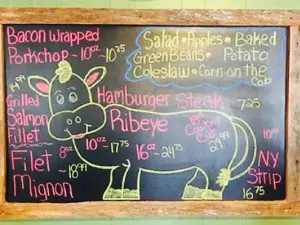 Bacon Wrapped
Porkchop ~ 10oz ~ 10.75
Salad • Apples • Baked
Green Beans • Potato
Coleslaw • Corn on the
Cob
14.99
Grilled
Salmon
Fillet
Hamburger Steak ~ 7.25
Ribeye
10oz 17.75
16oz ~ 24.75
29.99
Filet 8oz
Mignon ~ 18.99
10oz
NY
Strip
16.75